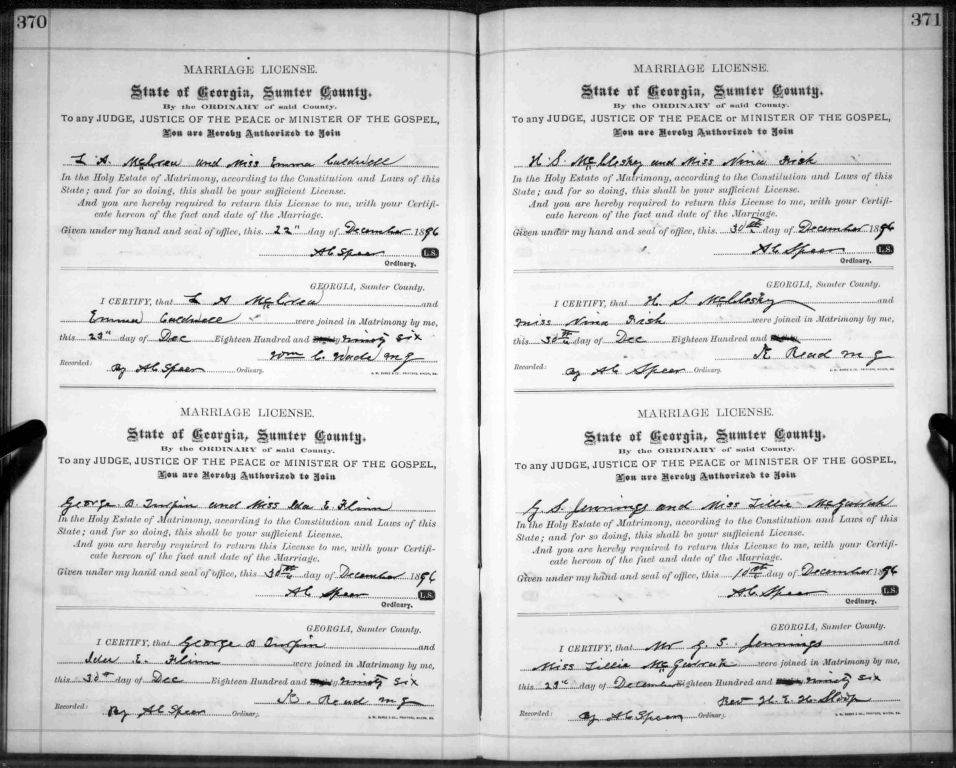 370
MARRIAGE LICENSE.
State of Georgia, Sumter County.
By the ORDINARY of said County.
To any JUDGE, JUSTICE OF THE PEACE or MINISTER OF THE GOSPEL,
You are Hereby Authorized to Join
L A McCrea and Miss Emma Caldwell
In the Holy Estate of Matrimony, according to the Constitution and Laws of this
State; and for so doing, this shall be your sufficient License.
And you are hereby required to return this License to me, with your Certifi-
cate hereon of the fact and date of the Marriage.
Given under my hand and seal of office, this 22" day of December 1896
A C Speer L.S.
Ordinary.
GEORGIA, Sumter County.
I CERTIFY, that L A McCrea and
Emma Caldwell were joined in Matrimony by me,
this 23" day of Dec Eighteen Hundred and ninety six
Wm C. Wade M G
Recorded: By A C Speer Ordinary.
MARRIAGE LICENSE.
State of Georgia, Sumter County.
By the ORDINARY of said County.
To any JUDGE, JUSTICE OF THE PEACE or MINISTER OF THE GOSPEL,
You are Hereby Authorized to Join
George B Turpin and Miss Ida E. Flinn
In the Holy Estate of Matrimony, according to the Constitution and Laws of this
State; and for so doing, this shall be your sufficient License.
And you are hereby required to return this License to me, with your Certifi-
cate hereon of the fact and date of the Marriage.
Given under my hand and seal of office, this 30th day of December 1896
A C Speer L.S.
Ordinary.
GEORGIA, Sumter County.
I CERTIFY, that George B Turpin and
Ida E. Flinn were joined in Matrimony by me,
this 30th day of Dec Eighteen Hundred and ninety six
K. Read M G
Recorded: By A C Speer Ordinary.
371
MARRIAGE LICENSE.
State of Georgia, Sumter County.
By the ORDINARY of said County.
To any JUDGE, JUSTICE OF THE PEACE or MINISTER OF THE GOSPEL,
You are Hereby Authorized to Join
H. S. McCleskey and Miss Nina Fish
In the Holy Estate of Matrimony, according to the Constitution and Laws of this
State; and for so doing, this shall be your sufficient License.
And you are hereby required to return this License to me, with your Certifi-
cate hereon of the fact and date of the Marriage.
Given under my hand and seal of office, this 30th day of December 1896
A C Speer L.S.
Ordinary.
GEORGIA, Sumter County.
I CERTIFY, that H. S McClesky and
Miss Nina Fish were joined in Matrimony by me,
this 30th day of Dec Eighteen Hundred and
K Read M G
Recorded: By A C Speer Ordinary.
MARRIAGE LICENSE.
State of Georgia, Sumter County.
By the ORDINARY of said County.
To any JUDGE, JUSTICE OF THE PEACE or MINISTER OF THE GOSPEL,
You are Hereby Authorized to Join
J. S. Jennings and Miss Tillie
In the Holy Estate of Matrimony, according to the Constitution and Laws of this
State; and for so doing, this shall be your sufficient License.
And you are hereby required to return this License to me, with your Certifi-
cate hereon of the fact and date of the Marriage.
Given under my hand and seal of office, this 10th day of December 1896
A C Speer L.S.
Ordinary.
GEORGIA, Sumter County.
I CERTIFY, that Mr J. S. Jennings and
Miss Tillie were joined in Matrimony by me,
this 23" day of December Eighteen Hundred and ninety six
Rev H. E. H.
Recorded: By A C Speer Ordinary.